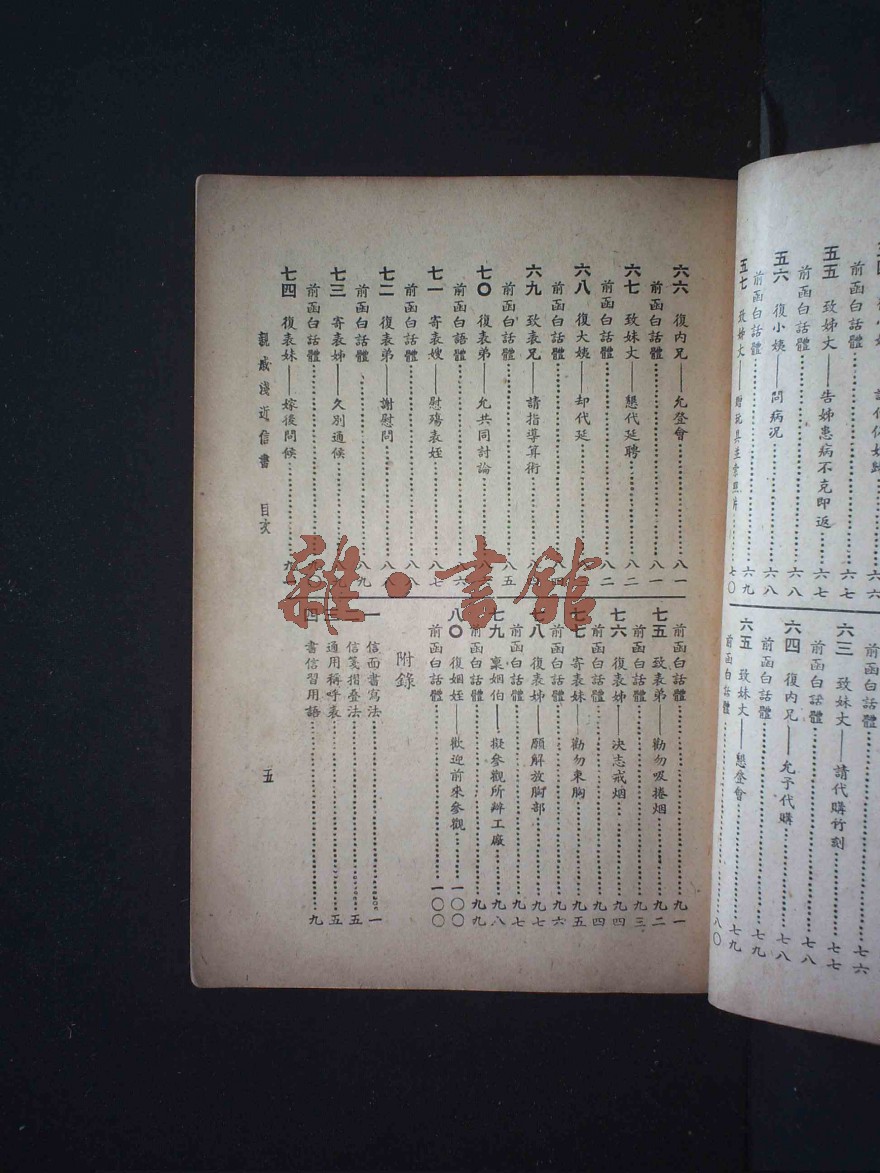 前函白話體……六七
五五 致姊丈——告姊患病不克即返……六七
前函白話體……六八
五六 復小姨——問病況……六八
前函白話體……六九
五七 致姊丈——贈玩具並索照片……七〇
前函白話體……七六
六三 致妹丈——請代購竹刻……七七
前函白話體……七八
六四 復內兄——允予代購……七八
前函白話體……七九
六五 致妹丈——懇登會……七九
前函白話體……八〇
六六 復內兄——允登會……八一
前函白話體……八一
六七 致妹丈——懇代延聘……八二
前函白話體……八二
六八 復大姨——却代延……八
前函白話體……四
六九 致表兄——請指導算術……八
前函白話體……八五
七〇 復表弟——允共同討論……八
前函白語體……六
七一 寄表嫂——慰殤表姪……八七
前函白話體……八八
七二 復表弟——謝慰問……八八
前函白話體……八九
七三 寄表姊——久別通候……九
前函白話體……九〇
七四 復表妹——嫁後問候……九一
前函白話體……九一
七五 致表弟——勸勿吸捲烟……九二
前函白話體……九三
七六 復表姊——決志戒烟……九四
前函白話體……九四
七七 寄表妹——勸勿束胸……九五
前函白話體……九六
七八 復表姊——願解放胸部……九七
前函白話體……九七
七九 稟姻伯——擬參觀所辦工廠……九八
前函白話體……九九
八〇 復姻姪——歡迎前來參觀……一〇〇
前函白話體……一〇〇
附錄
一 信面書寫法……一
二 信箋摺疊法……五
三 通用稱呼表……五
四 書信習用語……九
親戚淺近信書 目次
五
雜·書館